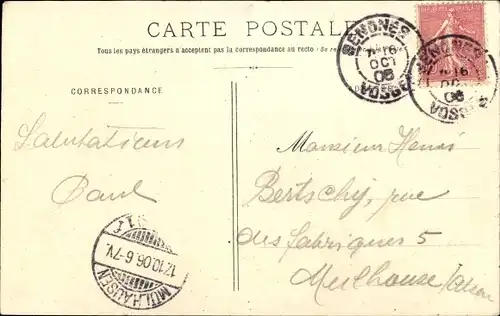 CARTE POSTALE
Tous les pays étrangers n'acceptent pas la correspondance au recto
CORRESPONDANCE
SENONES
16
OCT
06
VOSGES
SENONES
16
06
VOSGES
Salutations
Paul
Monsieur Henri
Bertschy, rue
des fabriques 5
Mulhouse/Alsace
12.10.06.6-7V.
MÜLHAUSEN